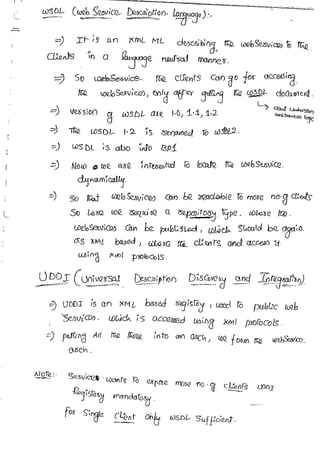 WSDL (Web Service Description Language):-
=) It is an XML ML describing the webServices to the
Clients in a language neutral manner.
=) So webService the clients can go for accessing
the webServices, only after getting the WSDL document.
client understand
webServices logic
=) Version of WSDL are 1.0, 1.1, 1.2
=) The WSDL 1.2 is renamed to WSDL2.
=) WSDL is also into BP1
=) Now we are interested to locate the webService.
dynamically.
=) So that webServices can be readable to more no.of clients
So here we require a repository type, where the
webServices can be published, which should be again.
as XML based, where the clients and access it
using XML protocols.
UDDI (Universal Description DisCovery and Integration)
=) UDDI is an XML based registry, used to public web
Services. which is accessed using xml protocols.
=) putting All the three into an arch, we form the webService.
arch.
Note:- Services wants to expose more no.of clients UDDI
Registry mandatory.
for Single Client only WSDL Sufficient.